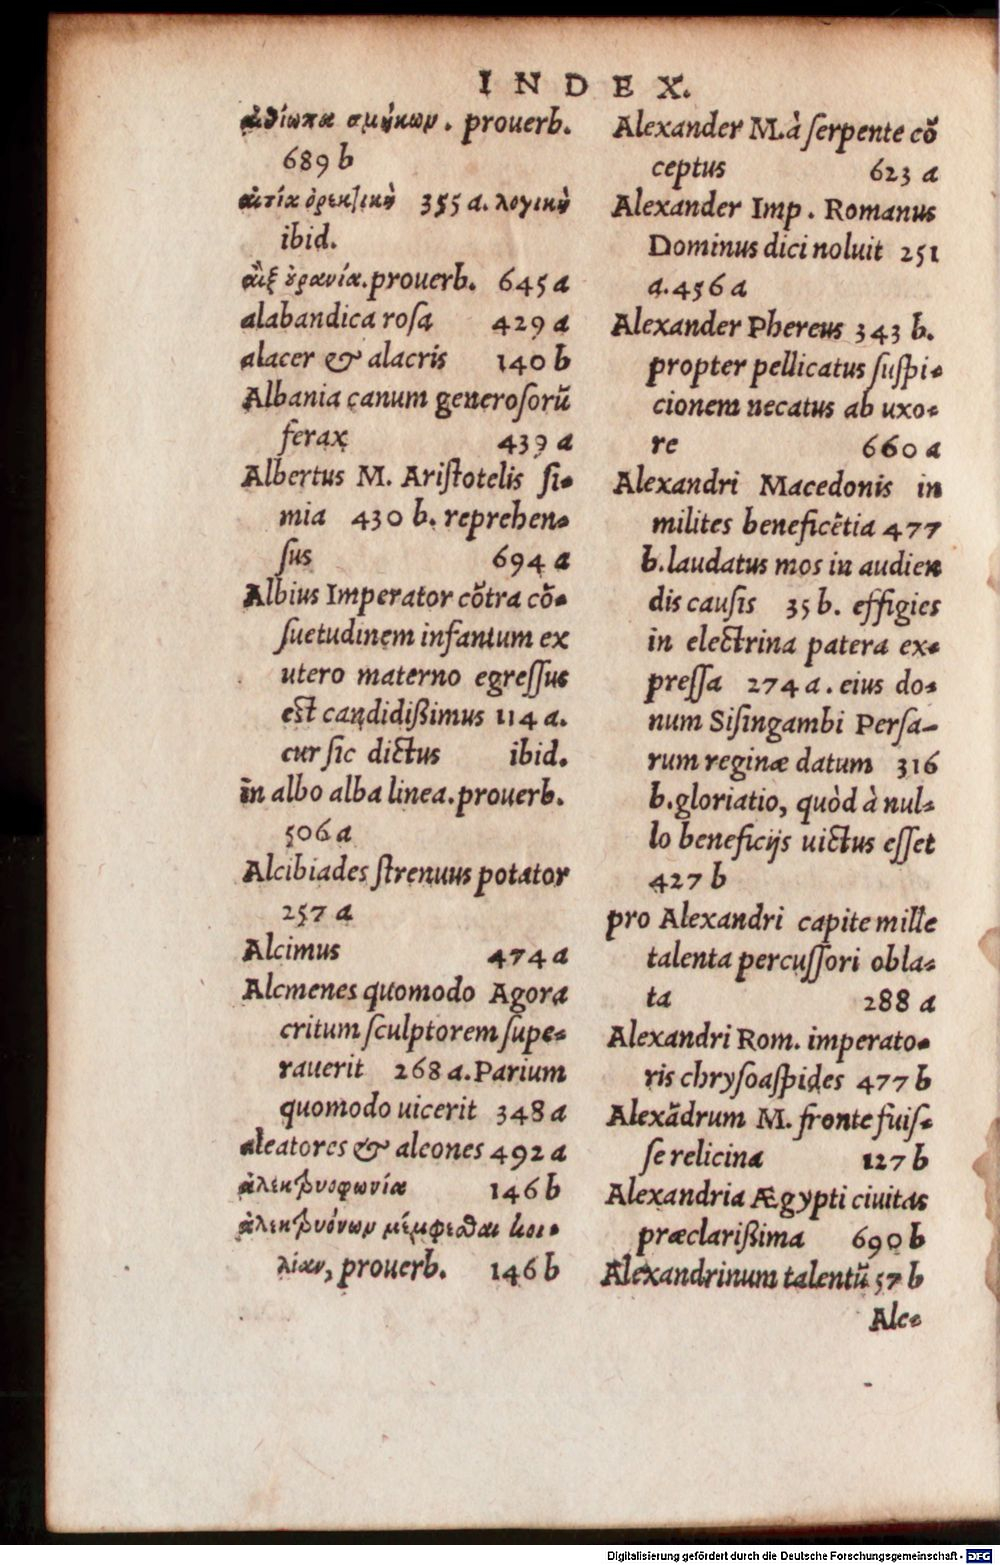 INDEX.
αἰθίωπα σμήχων. prouerb.
689 b
αἰτία ὀρεκτικὴ 355 a. λογικὴ
ibid.
αἲξ οὐρανία. prouerb. 645 a
alabandica roſa 429 a
alacer & alacris 140 b
Albania canum generoſorũ
ferax 439 a
Albertus M. Ariſtotelis ſi-
mia 430 b. reprehen-
ſus 694 a
Albius Imperator cõtra cõ-
ſuetudinem infantum ex
utero materno egreſſus
eſt candidißimus 114 a.
cur ſic dictus ibid.
in albo alba linea. prouerb.
506 a
Alcibiades ſtrenuus potator
257 a
Alcimus 474 a
Alcmenes quomodo Agora
critum ſculptorem ſupe-
rauerit 268 a. Parium
quomodo uicerit 348 a
aleatores & aleones 492 a
ἀλεκτρυοφωνία 146 b
ἀλεκτρυόνων μέμφεσθαι κοι-
λίαν, prouerb. 146 b
Alexander M. à ſerpente cõ
ceptus 623 a
Alexander Imp. Romanus
Dominus dici noluit 251
a. 456 a
Alexander Phereus 343 b.
propter pellicatus ſuſpi-
cionem necatus ab uxo-
re 660 a
Alexandri Macedonis in
milites beneficẽtia 477
b. laudatus mos in audien
dis cauſis 35 b. effigies
in electrina patera ex-
preſſa 274 a. eius do-
num Siſingambi Perſa-
rum reginæ datum 316
b. gloriatio, quòd à nul-
lo beneficijs uictus eſſet
427 b
pro Alexandri capite mille
talenta percuſſori obla-
ta 288 a
Alexandri Rom. imperato-
ris chryſoaſpides 477 b
Alexãdrum M. fronte fuiſ-
ſe relicina 127 b
Alexandria Ægypti ciuitas
præclarißima 690 b
Alexandrinum talentũ 57 b
Ale-
Digitalisierung gefördert durch die Deutsche Forschungsgemeinschaft - DFG